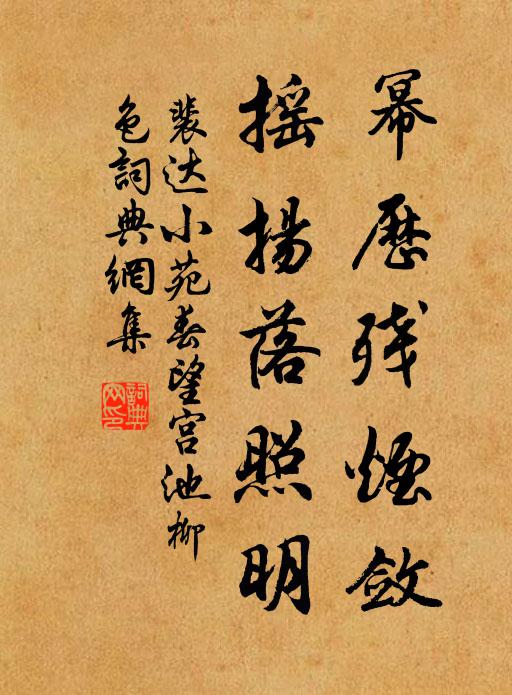 幂历残烟敛
摇扬落照明
裴达小苑春望宫池柳
色词典網集
词典网印